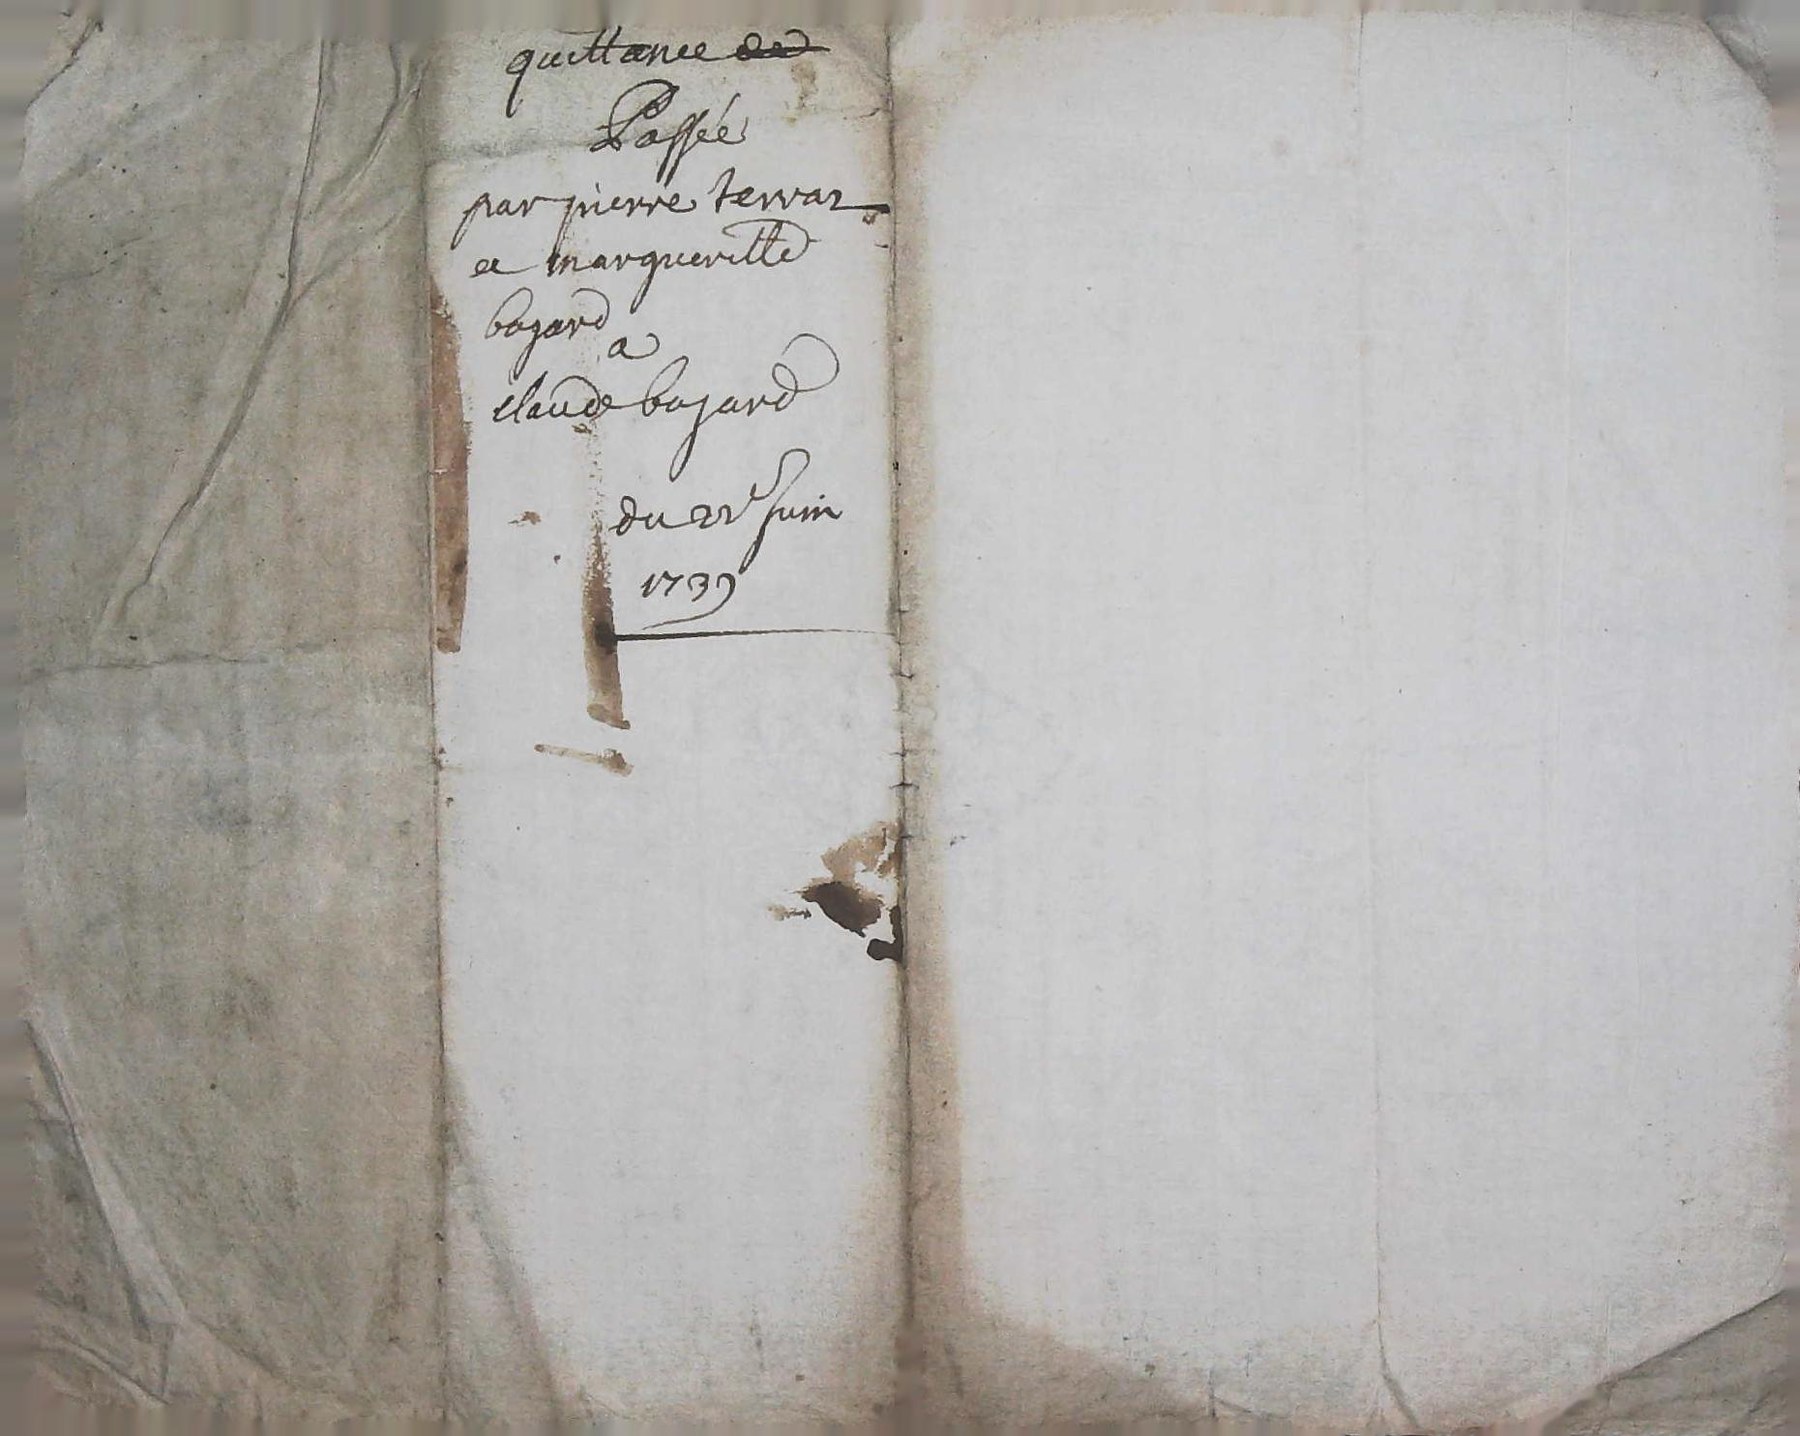 quittance de
Passée
par pierre terraz
et margueritte
bogard
a
claude bogard
du 22e Juin
1739